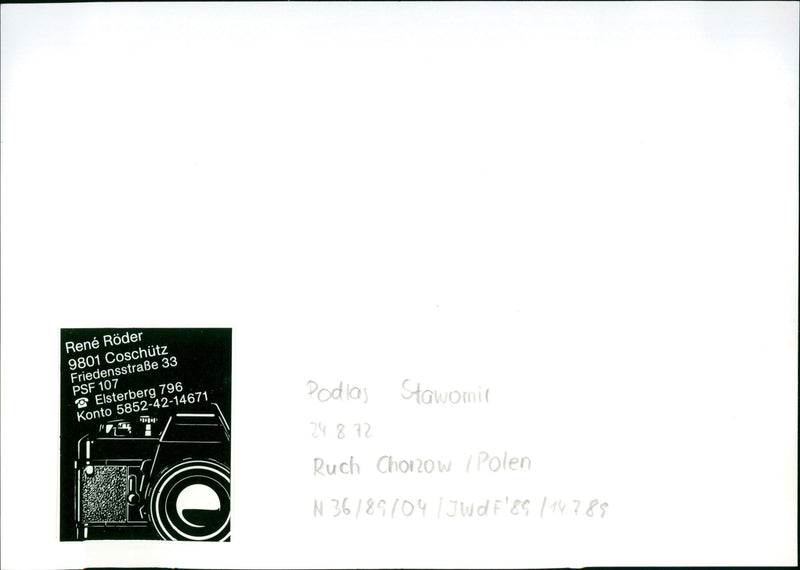 René Röder
9801 Coschütz
Friedensstraße 33
PSF 107
☎ Elsterberg 796
Konto 5852-42-14671
Podlas Sławomir
24.8.72
Ruch Chorzow / Polen
N 36/89/04 / JWdF'89 / 14.7.89